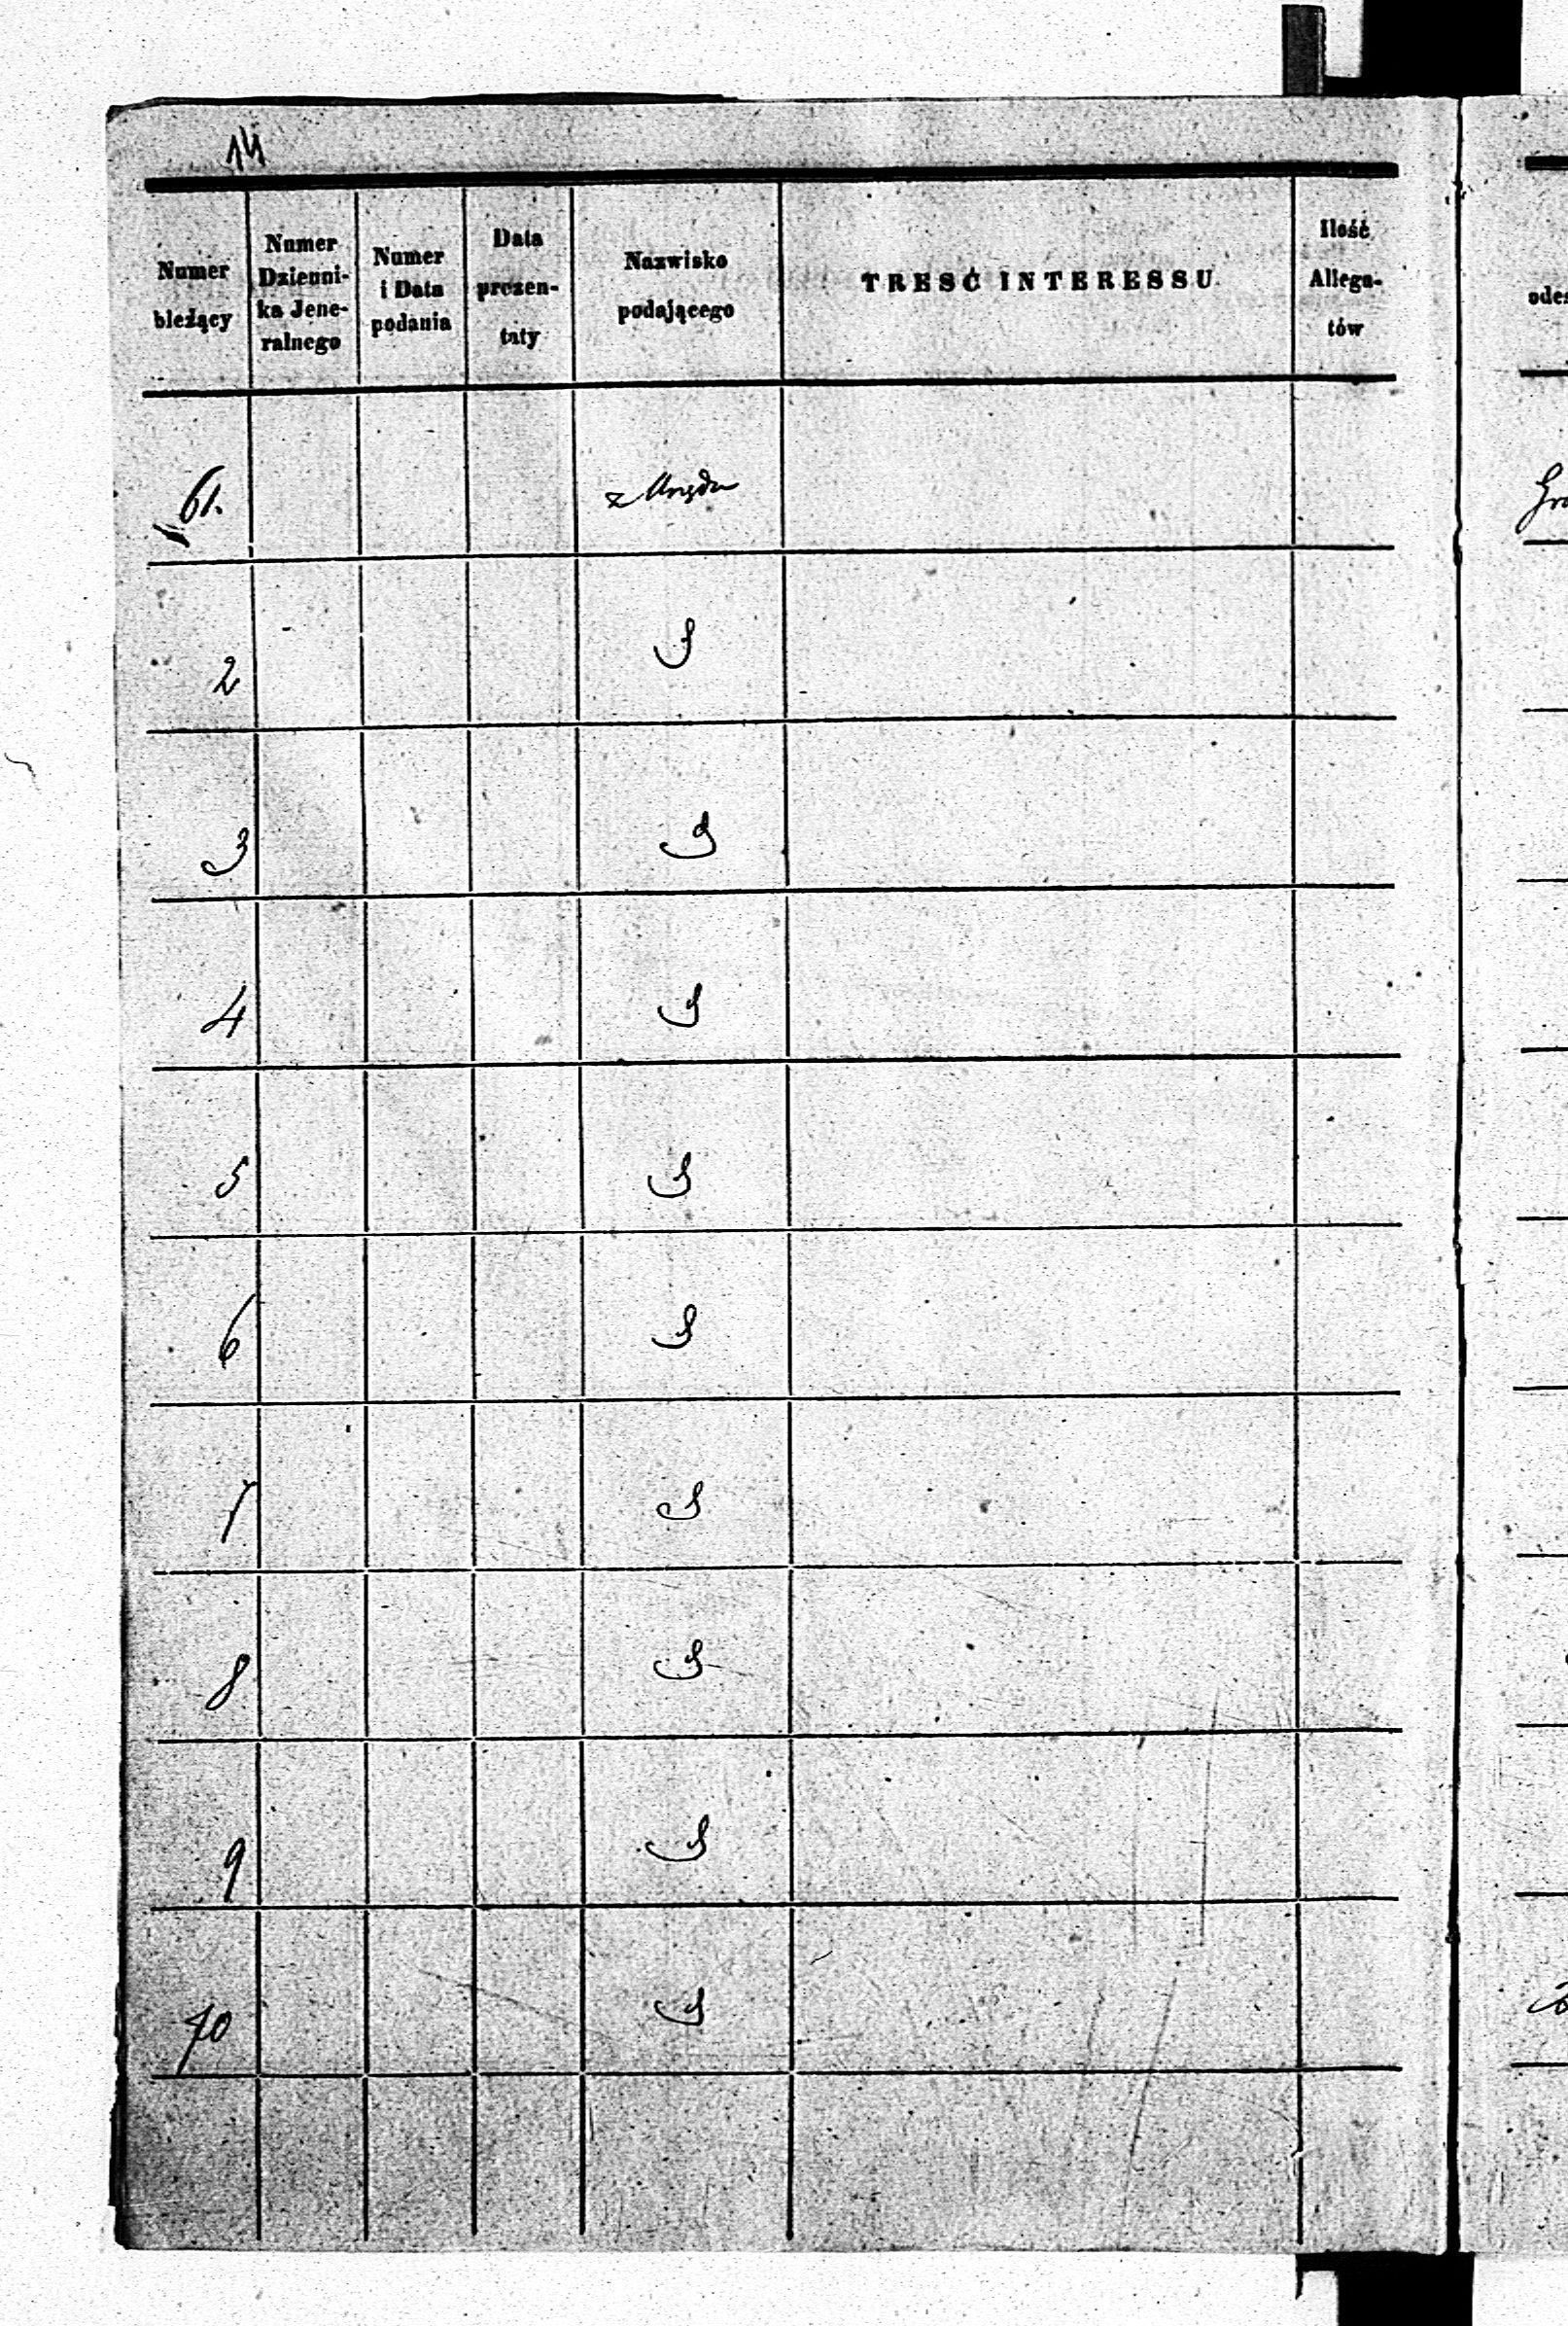 14
Numer bieżący
Numer Dzienni-ka Jene-ralnego
Numer i Data podania
Data prezen-taty
Nazwisko podającego
TRESĆ INTERESSU
Ilość Allega-tów
61. z Urzędu
2
3
4
5
6
7
8
9
70